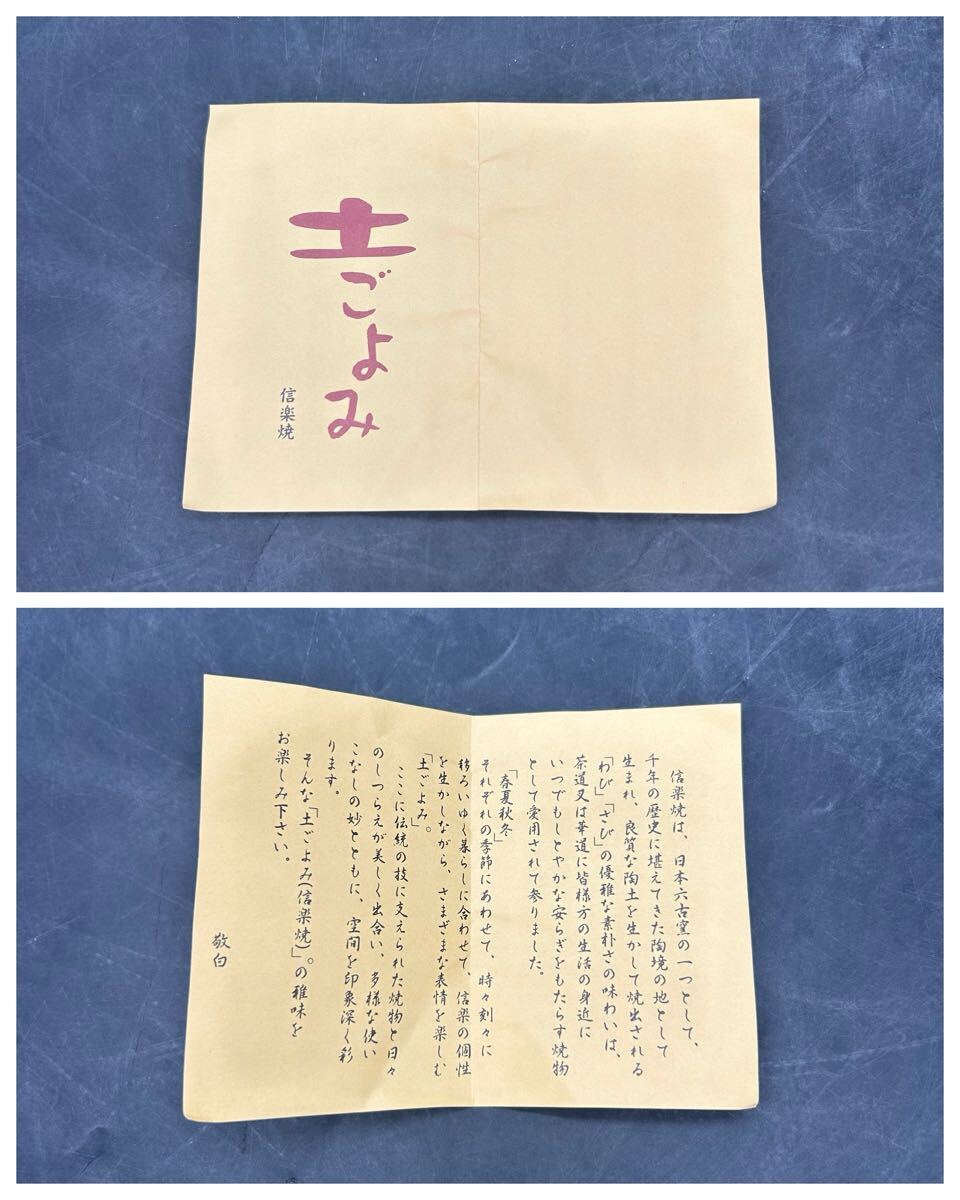 土ごよみ
信楽焼
信楽焼は、日本六古窯の一つとして、
千年の歴史に堪えてきた陶境の地として
生まれ、良質な陶土を生かして焼出される
「わび」「さび」の優雅な素朴さの味わいは、
茶道又は華道に皆様方の生活の身近に
いつでもしとやかな安らぎをもたらす焼物
として愛用されて参りました。
「春夏秋冬」
それぞれの季節にあわせて、時々刻々に
移ろいゆく暮らしに合わせて、信楽の個性
を生かしながら、さまざまな表情を楽しむ
「土ごよみ」。
ここに伝統の技に支えられた焼物と日々
のしつらえが美しく出合い、多様な使い
こなしの妙とともに、空間を印象深く彩
ります。
そんな「土ごよみ(信楽焼)」。の雅味を
お楽しみ下さい。
敬白